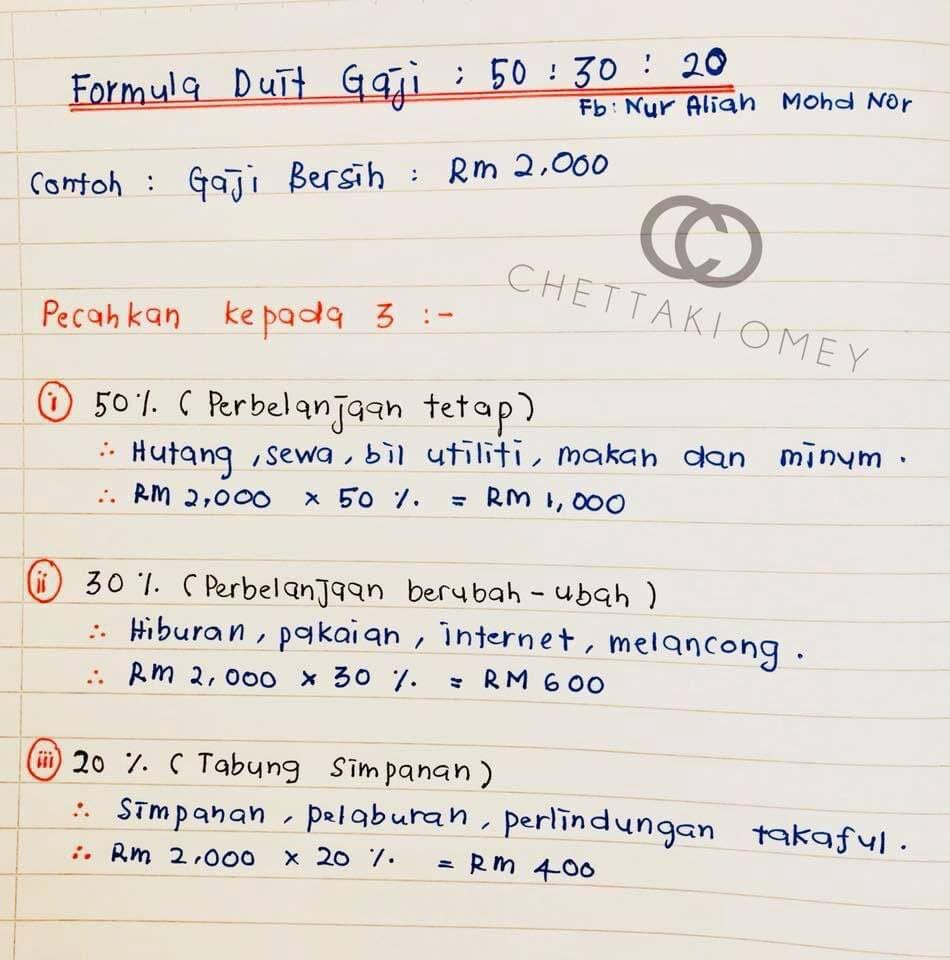 Formula Duit Gaji : 50 : 30 : 20
Fb: Nur Aliah Mohd Nor
Contoh : Gaji Bersih : Rm 2,000
CHETTAKI OMEY
Pecahkan kepada 3 :-
i 50% (Perbelanjaan tetap)
∴ Hutang, sewa, bil utiliti, makan dan minum.
∴ RM 2,000 x 50 % = RM 1,000
ii 30 % (Perbelanjaan berubah-ubah)
∴ Hiburan, pakaian, internet, melancong.
∴ RM 2,000 x 30 % = RM 600
iii 20 % (Tabung Simpanan)
∴ Simpanan, pelaburan, perlindungan takaful.
∴ Rm 2,000 x 20 % = Rm 400